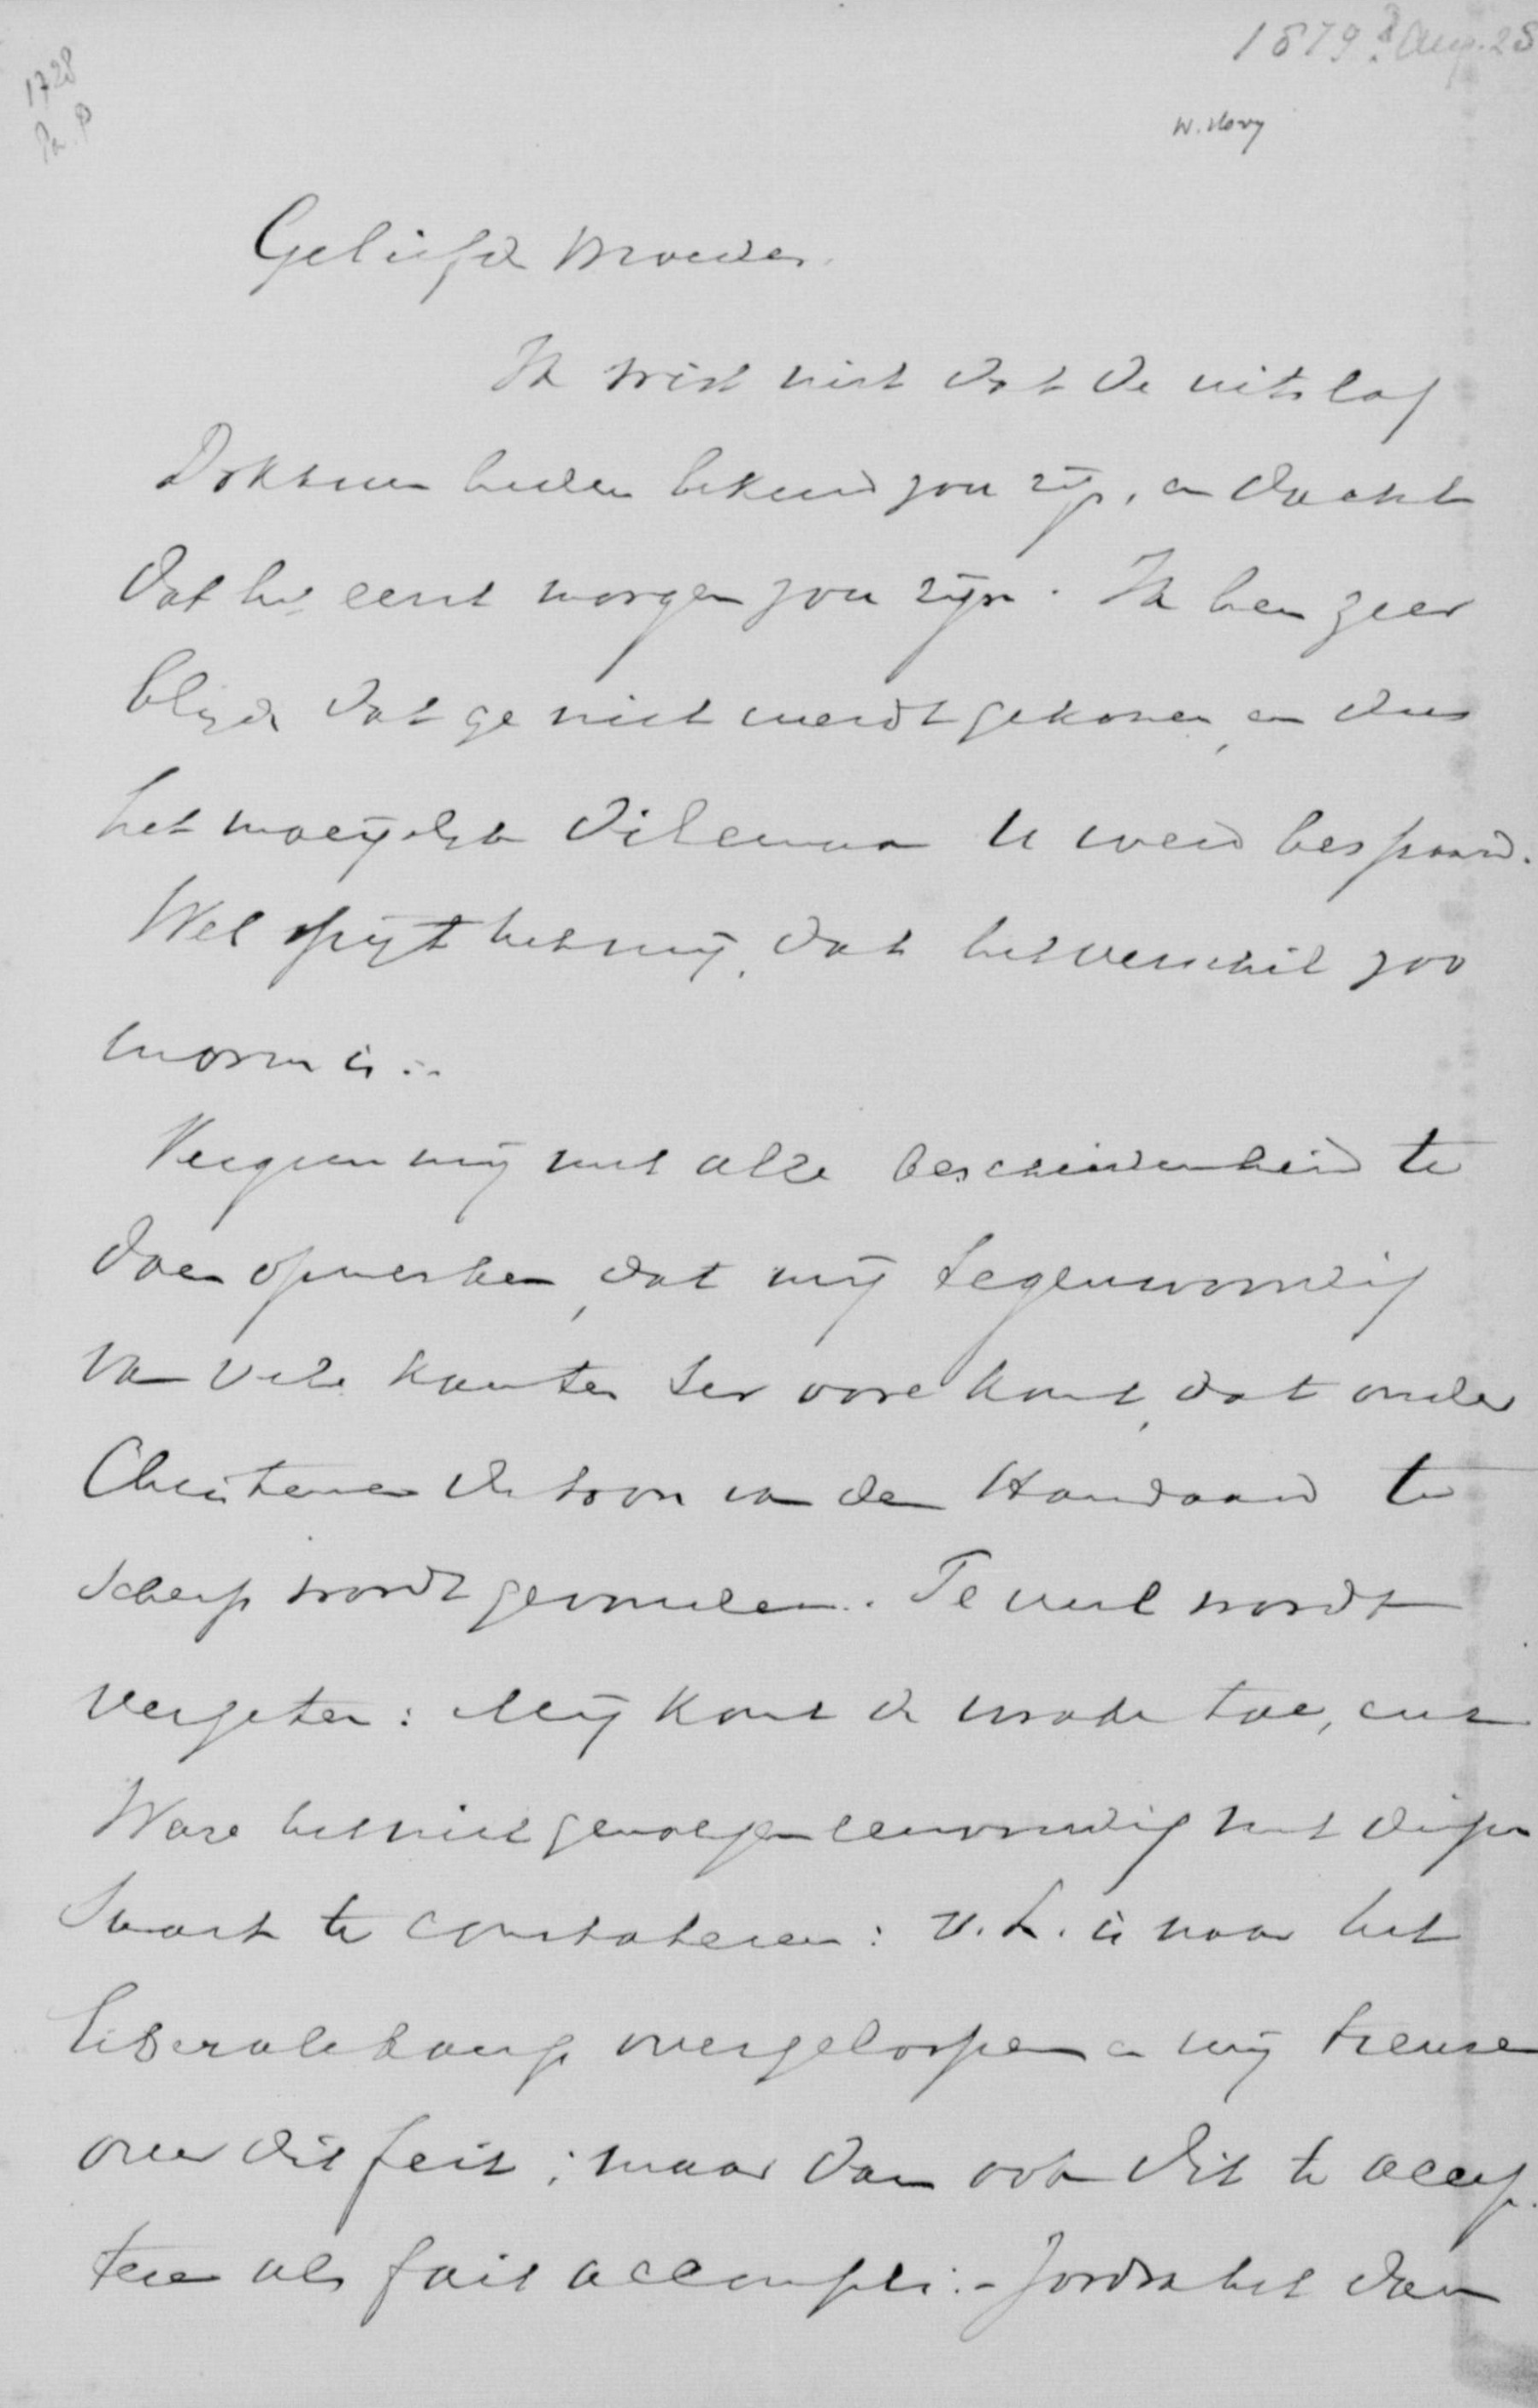 1879? Aug. 28
1728
Pa. P
W. Hovy
Geliefde Broeder.
Ik wist niet dat de uitslag
Dokkum heden bekend zou zijn, en dacht
dat het eerst morgen zou zijn. Ik ben zeer
blijde dat ge niet werdt gekozen, en dus
het moeijelijk dilemma U werd bespaard.
Wel spijt het mij, dat het verschil zoo
enorm is..
Vergun mij met alle bescheidenheid te
doen opmerken, dat mij tegenwoordig
van vele kanten ter oore komt, dat onder
Christenen de toon van den Standaard te
scherp wordt gevonden. Te veel wordt
vergeten: Mij komt de wrake toe, enz
Ware het niet genoegen eenvoudig met diepe
smart te constateren: v. L. is naar het
liberale kamp overgeloopen en wij treuren
over dit feit; maar dan ook dit te accep-
teren als fait accompli.- Zoodra het dan